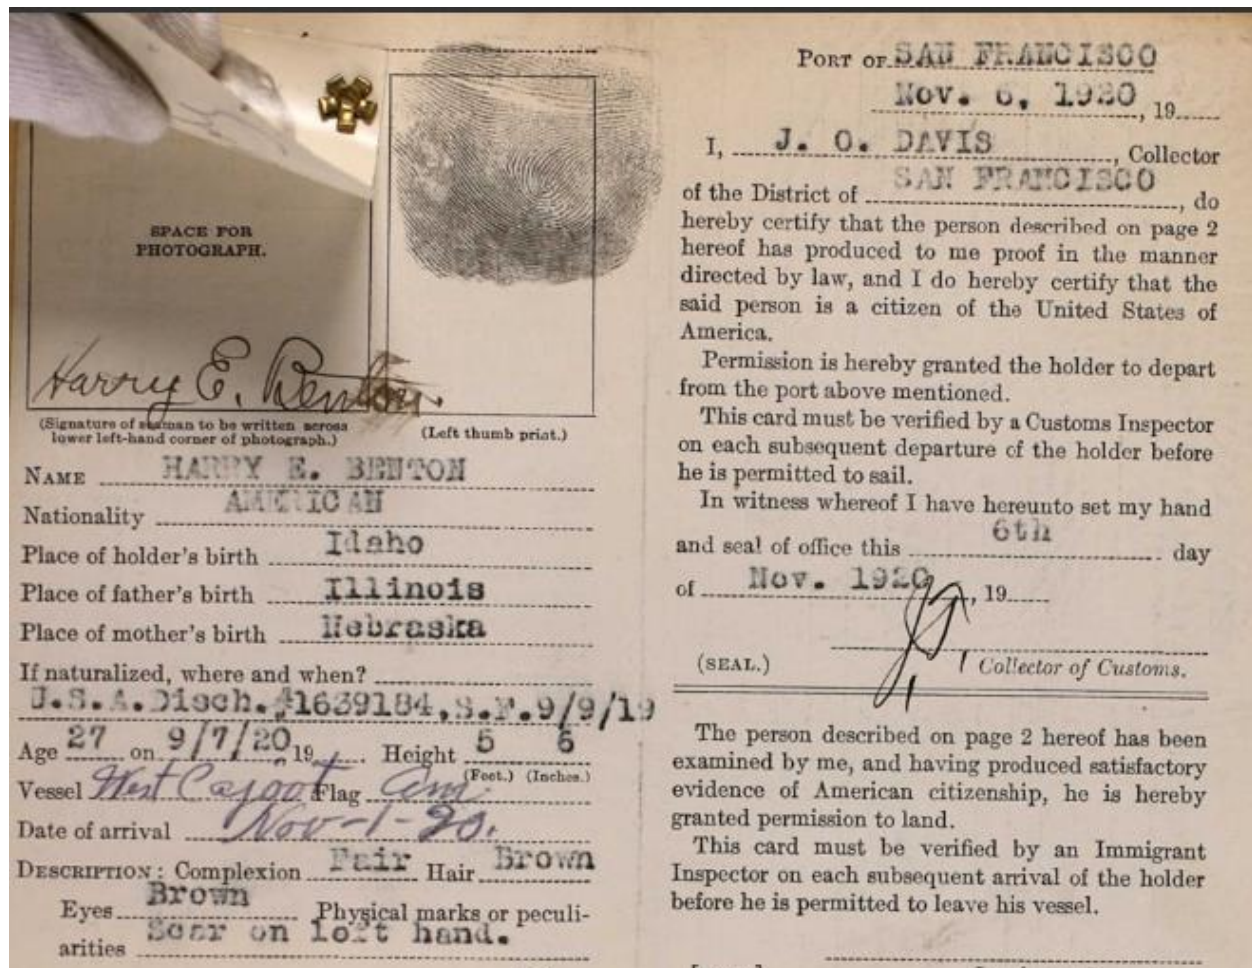 SPACE FOR
PHOTOGRAPH.
Harry E. Benton.
(Signature of seaman to be written across
lower left-hand corner of photograph.)
(Left thumb print.)
NAME HARRY E. BENTON
Nationality AMERICAN
Place of holder's birth Idaho
Place of father's birth Illinois
Place of mother's birth Nebraska
If naturalized, where and when?
U.S.A.Disch.#1639184,S.F.9/9/19
Age 27 on 9/7/20, 19 Height 5 6
(Feet.) (Inches.)
Vessel West Cajoot Flag Am.
Date of arrival Nov-1-20.
DESCRIPTION: Complexion Fair Hair Brown
Eyes Brown Physical marks or peculi-
arities Scar on left hand.
PORT OF SAN FRANCISCO
Nov. 6, 1920, 19
I, J. O. DAVIS, Collector
of the District of SAN FRANCISCO, do
hereby certify that the person described on page 2
hereof has produced to me proof in the manner
directed by law, and I do hereby certify that the
said person is a citizen of the United States of
America.
Permission is hereby granted the holder to depart
from the port above mentioned.
This card must be verified by a Customs Inspector
on each subsequent departure of the holder before
he is permitted to sail.
In witness whereof I have hereunto set my hand
and seal of office this 6th day
of Nov. 1920, 19
(SEAL.) Collector of Customs.
The person described on page 2 hereof has been
examined by me, and having produced satisfactory
evidence of American citizenship, he is hereby
granted permission to land.
This card must be verified by an Immigrant
Inspector on each subsequent arrival of the holder
before he is permitted to leave his vessel.